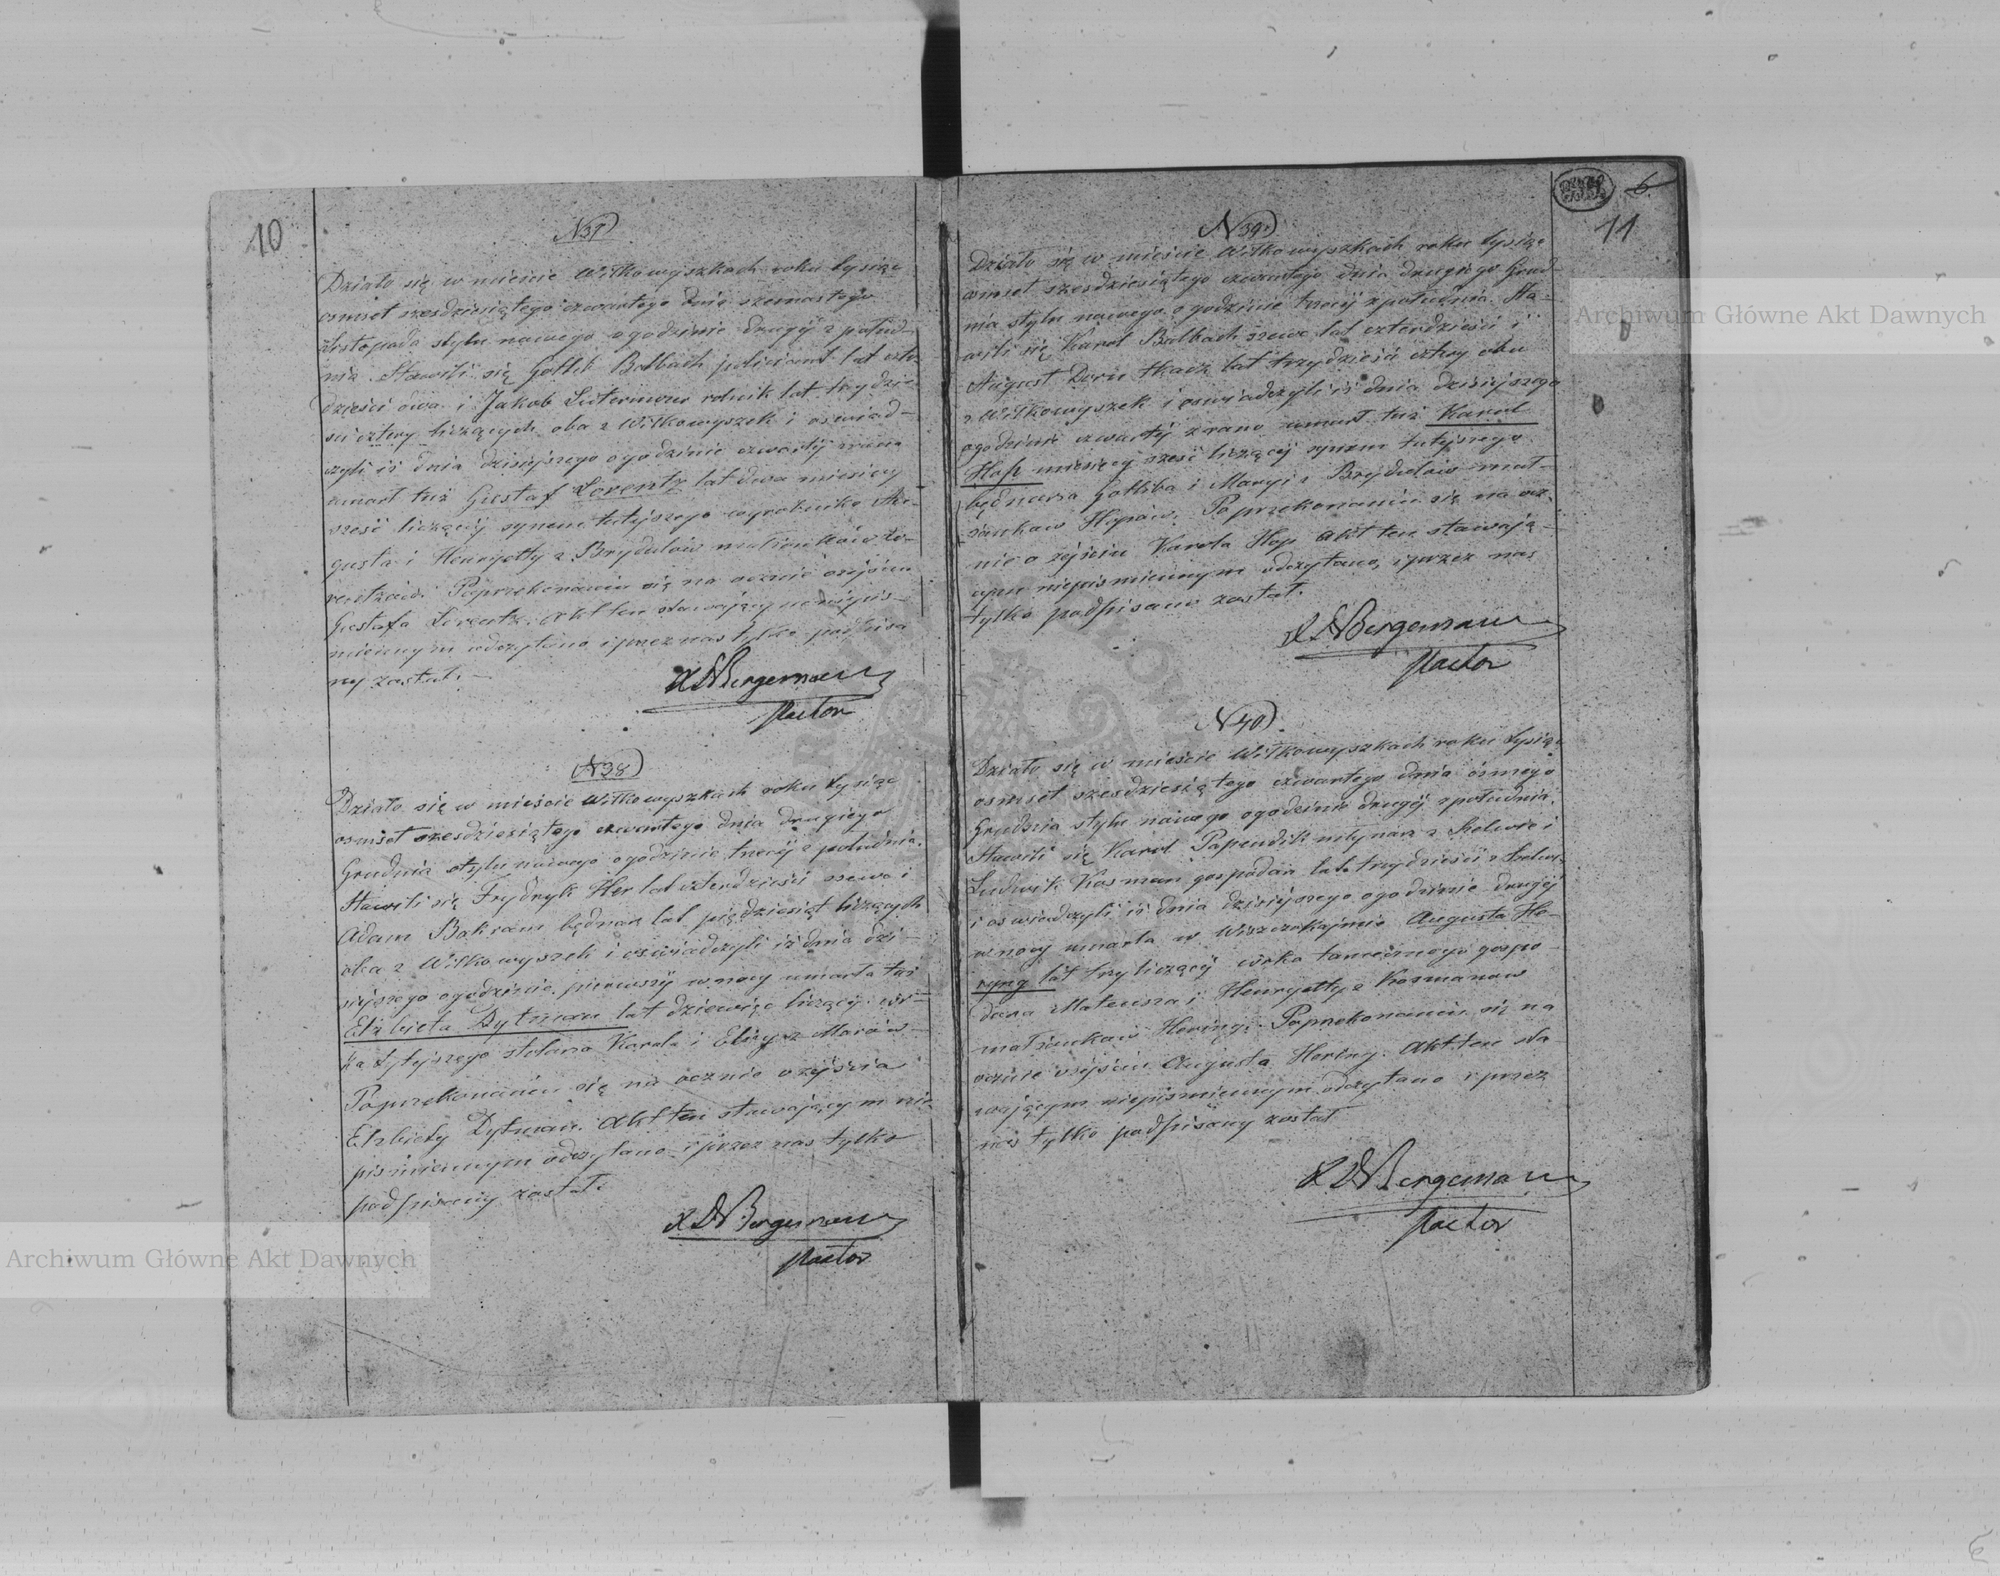 10
N 37)
Działo się w mieście Wiłkowyszkach roku tysiąc
osmset szesdziesiątego czwartego dnia szesnastego
Listopada stylu nowego o godzinie drugiéj z połud-
nia. Stawili się Gotlib Balbach policiant lat czter
dzieści dwa i Jakob rolnik lat trzydzie
ści cztery liczących oba z Wiłkowyszek i oswiad-
czyli iż dnia dzisiejszego o godzinie czwartéj zrana
umarł tuż Gustaf Lorentz lat dwa miesięcy
sześć liczący synem tutejszego wyrobnika Au-
gusta i Henryetty z Brydulów małżonków Lo-
rentzów. Po przekonaniu się na ocznie o zejściu
Gustafa Lorentz. Akt ten stawającym niepis-
miennym odczytano i przez nas tylko podpisa
ny został.
X D Bergemann
Pastor
N 38)
Działo się w mieście Wiłkowyszkach roku tysiąc
osmset szesdziesiątego czwartego dnia drugiego
Grudnia stylu nowego o godzinie trzeciéj z południa.
Stawili się Frydryk Her lat czterdzieści szewc i
Adam Bakram bednarz lat pięćdziesiąt liczących
oba z Wiłkowyszek i oświadczyli iż dnia dzi-
siejszego o godzinie pierwszéj w nocy umarła tuż
Elżbieta Dytman lat dziewięć liczący cór-
ka tytejszego stolarza Karola i Elizy z
Po przekonaniu się na ocznie o zejścia
Elzbiety Dytman. Akt ten stawającym nie
piśmiennym odczytano i przez nas tylko
podpisany został.
X D Bergemann
Pastor
6
11
N 39)
Działo się w mieście Wiłkowyszkach roku tysiąc
osmset szesdziesiątego czwartego dnia drugiego Grud-
nia stylu nowego o godzinie trzeciéj z południa. Sta-
wili się Karol Balbach szewc lat czterdzieści i
August Dorn tkacz lat trzydzieści cztery oba
z Wiłkowyszek i oswiadczyli iż dnia dzisiejszego
o godzinie czwartéj z rana umarł tuż Karol
Hop miesięcy sześć liczący synem tutejszego
bednarza Gotliba i Maryi z Brejdulów mał-
żonków Hopów. Po przekonaniu się na ocz-
nie o zejściu Karola Hop Akt ten stawają-
cym niepismiennym odczytano, i przez nas
tylko podpisano został.
X D Bergemann
Pastor
N 40)
Działo się w mieście Wiłkowyszkach roku tysiąc
osmset szesdziesiątego czwartego dnia ósmego
Grudnia stylu nowego o godzinie drugiéj z południa.
Stawili się Karol Papendik młynarz z i
Ludwik Kosman gospodarz lat trzydzieści z
i oswiadczyli iż dnia dzisiejszego o godzinie drugiéj
w nocy umarła w Wiszczakajmie Augusta He-
ryng lat trzy liczący córka tamecznego gospo-
darza Mateusza i Henryetty z Kosmanow
małżonków Hering. Po przekonaniu się na
ocznie o zejściu Augusta Hering. Akt ten sta
wającym niepiśmiennym odczytano i przez
nas tylko podpisany został
X D Bergemann
Pastor
Archiwum Główne Akt Dawnych
Archiwum Główne Akt Dawnych